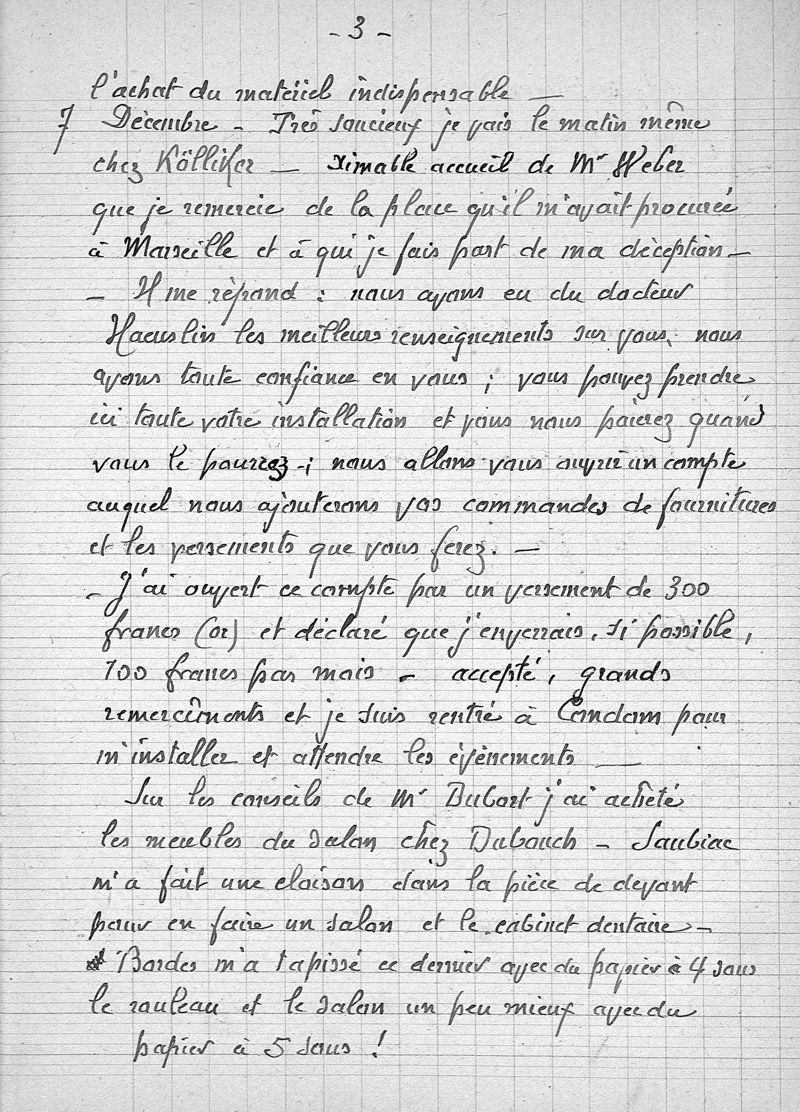 - 3 -
l'achat du matériel indispensable —
7 Décembre - Très soucieux je vais le matin même
chez Kölliker — Aimable accueil de Mr Weber
que je remercie de la place qu'il m'avait procurée
à Marseille et à qui je fais part de ma déception —
- Il me répond : nous avons eu du docteur
Haeuslin les meilleurs renseignements sur vous, nous
avons toute confiance en vous ; vous pouvez prendre
ici toute votre installation et vous nous paierez quand
vous le pourrez - ; nous allons vous ouvrir un compte
auquel nous ajouterons vos commandes de fournitures
et les versements que vous ferez. —
- J'ai ouvert ce compte par un versement de 300
francs (or) et déclaré que j'enverrais, si possible,
100 francs par mois - accepté, grands
remerciments et je suis rentré à Condom pour
m'installer et attendre les évènements —
Sur les conseils de Mr Dubort j'ai acheté
les meubles du salon chez Dubouch - Saubiac
m'a fait une cloison dans la pièce de devant
pour en faire un salon et le cabinet dentaire -
Bordes m'a tapissé ce dernier avec du papier à 4 sous
le rouleau et le salon un peu mieux avec du
papier à 5 sous !